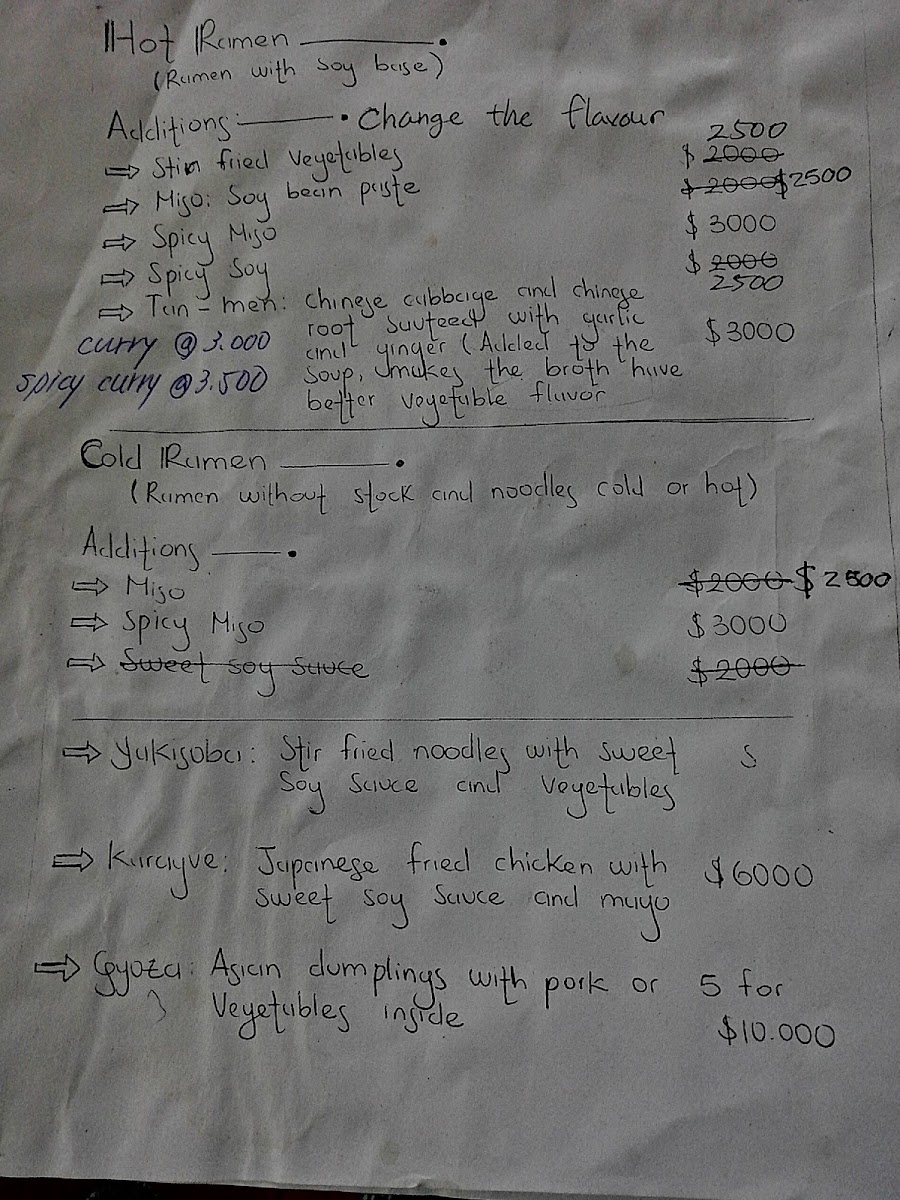 Hot Ramen
(Ramen with soy base)
Additions: Change the flavour
⇒ Stir fried Vegetables $ 2000 2500
⇒ Miso: Soy bean paste $ 2000 $2500
⇒ Spicy Miso $ 3000
⇒ Spicy Soy $ 2000 2500
⇒ Tan-men: chinese cabbage and chinese
root sauteed with garlic
and ginger (Added to the $3000
soup, makes the broth have
better vegetable flavor
curry @ 3.000
spicy curry @ 3.500
Cold Ramen
(Ramen without stock and noodles cold or hot)
Additions
⇒ Miso $2000 $2500
⇒ Spicy Miso $3000
⇒ Sweet soy sauce $2000
⇒ Yakisoba: Stir fried noodles with sweet S
Soy sauce and vegetables
⇒ Karagve: Japanese fried chicken with $6000
sweet soy sauce and mayo
⇒ Gyoza: Asian dumplings with pork or 5 for
Vegetables inside $10.000